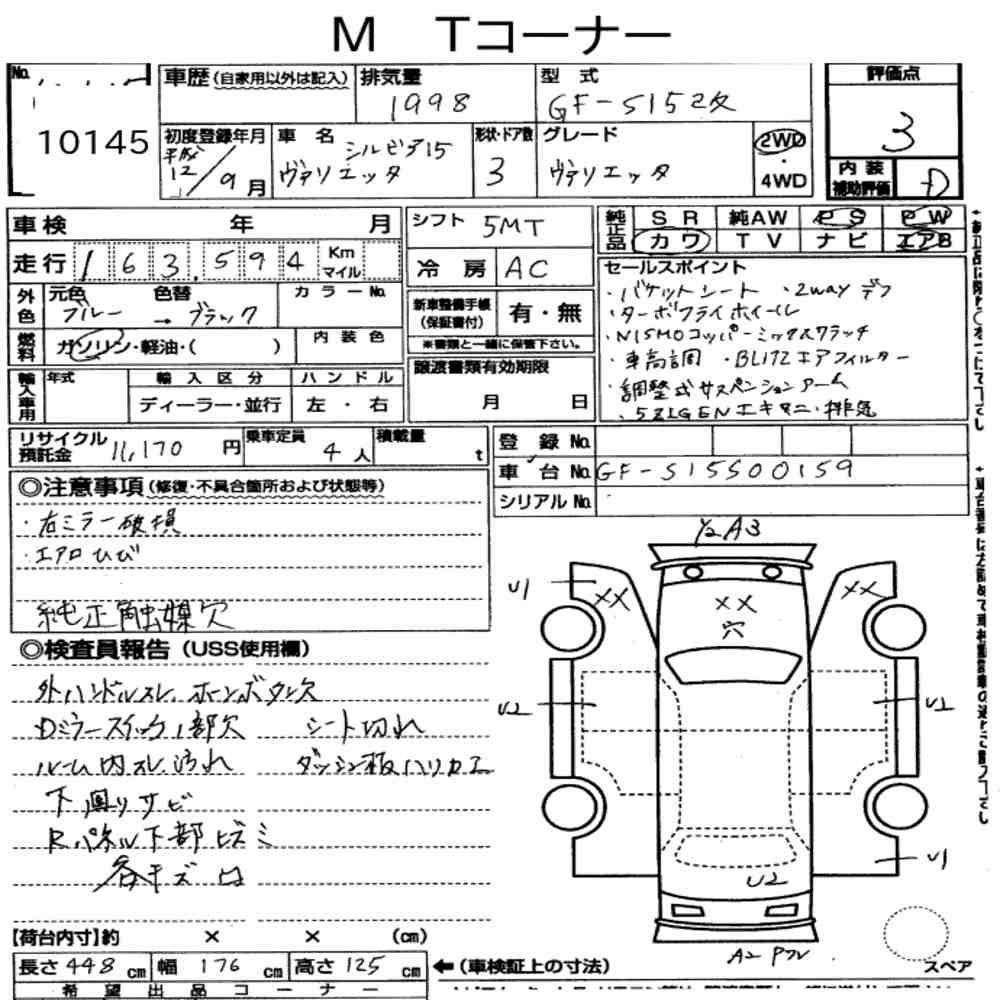 M Tコーナー
No.
10145
車歴 (自家用以外は記入)
排気量 1998
型式 GF-S15改
評価点 3
初度登録年月 平成12/9月
車名 シルビア15 ヴァリエッタ
形状・ドア数 3
グレード ヴァリエッタ
2WD・4WD
内装補助評価 D
車検 年 月
シフト 5MT
純正品 SR 純AW PS PW
カワ TV ナビ エアB
走行 163,594 Km マイル
冷房 AC
外色 元色 ブルー → 色替 ブラック
カラーNo.
新車整備手帳(保証書付) 有・無
※書類と一緒に保管下さい。
セールスポイント
・バケットシート ・2wayデフ
・ターボフライホイール
・NISMOコッパーミックスクラッチ
・車高調 ・BLITZエアフィルター
・調整式サスペンションアーム
・5ZIGENエキマニ・排気
燃料 ガソリン・軽油・( )
内装色
輸入車用 年式
輸入区分 ディーラー・並行
ハンドル 左・右
譲渡書類有効期限 月 日
リサイクル預託金 11,170円
乗車定員 4人
積載量 t
登録No.
車台No. GF-S15500159
シリアルNo.
◎注意事項 (修復・不具合箇所および状態等)
・右ミラー破損
・エアロひび
純正触媒欠
◎検査員報告 (USS使用欄)
外ハンドルスレ、ホーンボタン欠
Dミラースイッチ1部欠 シート切れ
ルーム内スレ、汚れ ダッシュ板ハリカエ
下廻りサビ
Rパネル下部ヒズミ
各キズ凹
Y2 A3
U1 XX XX XX
穴
U2 U1
U2 U1
A2 Pフル
スペア
【荷台内寸】約 × × (cm)
長さ 448 cm 幅 176 cm 高さ 125 cm
←(車検証上の寸法)
希望出品コーナー